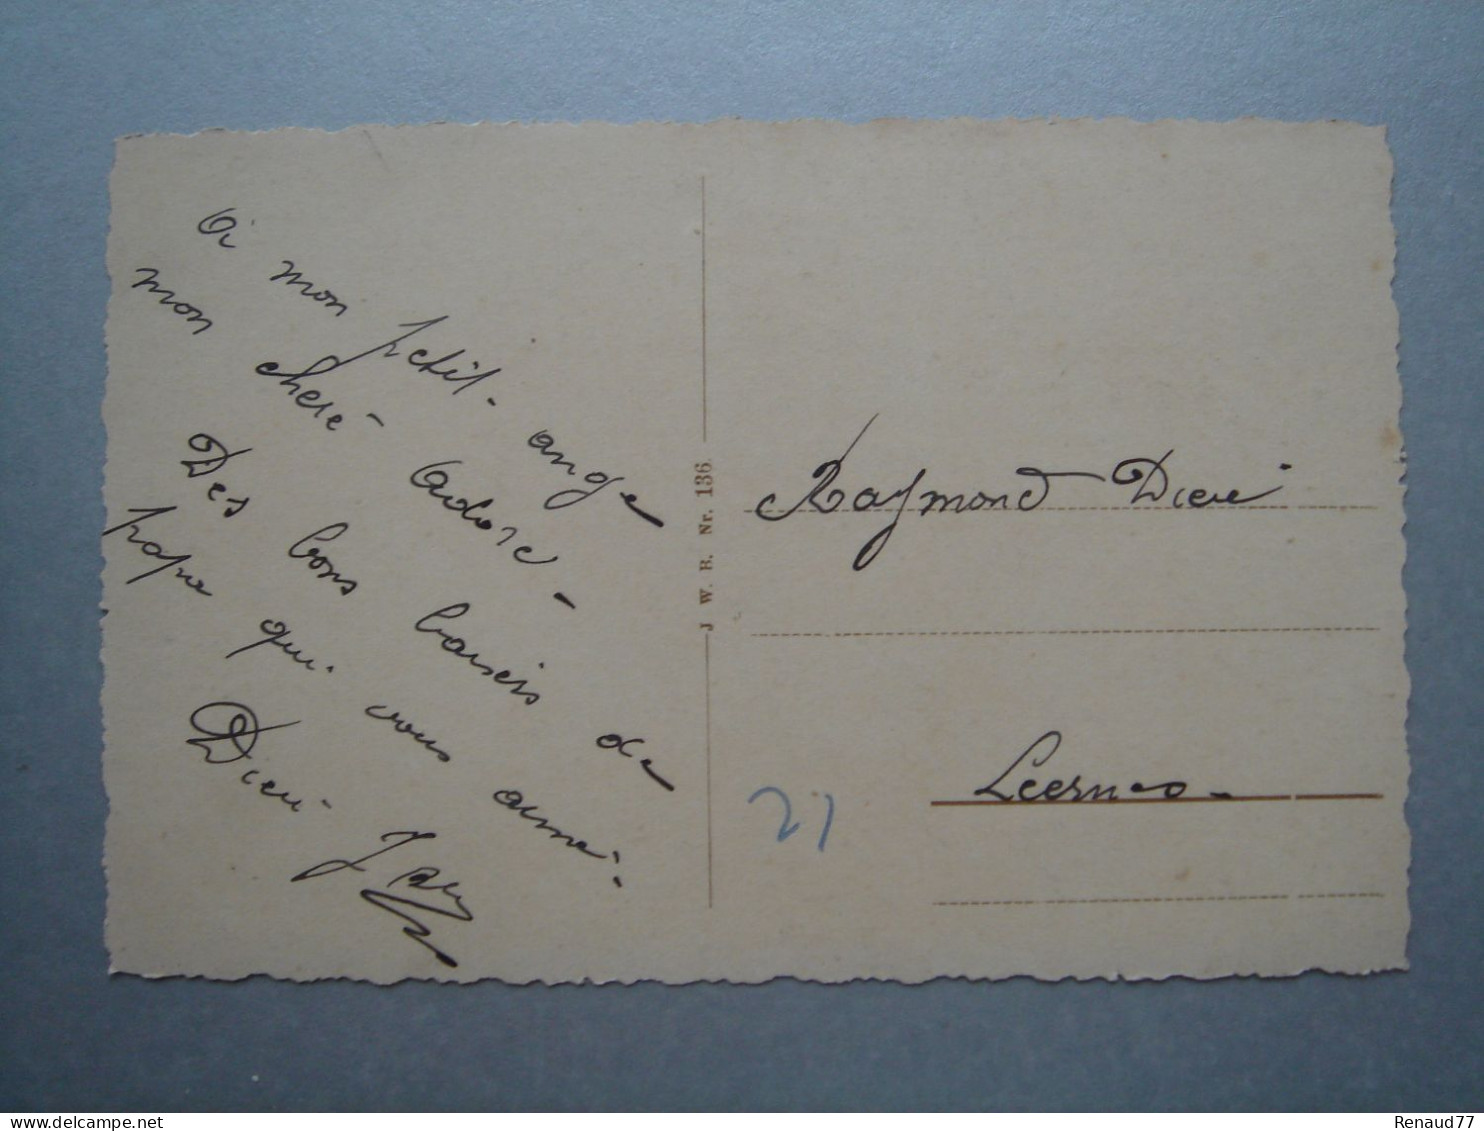 A mon petit ange
mon cheré Adoré
Des bons baisers de
papa qui vous aime
Dieu
J. W. B. Nr. 136
Raymond Dieu
Leernes
27
Renaud77